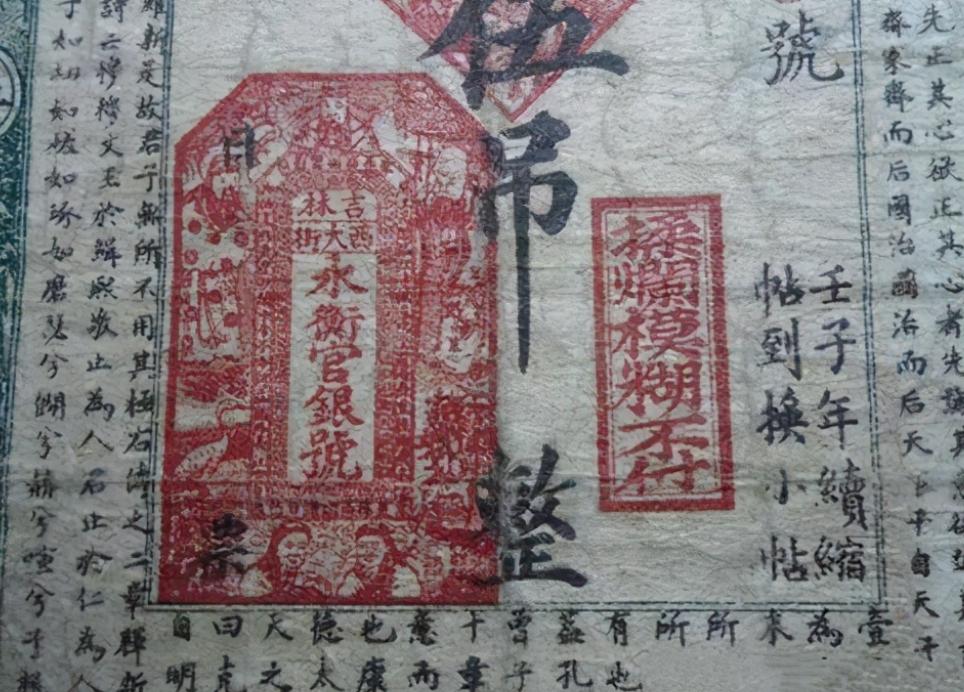 先正其心欲正其心者先誠其意欲
齊家齊而后國治國治而后天下平自天子
號
壬子年續縮
帖到換小帖
揉爛模糊不付
伍吊整
吉林
西大街
永衡官銀號
票
維新是故君子無所不用其極右傳之二章釋新
詩云穆穆文王於緝熙敬止為人君止於仁為人
如切如磋如琢如磨瑟兮僩兮赫兮喧兮
壹
為
来
所
所
有也
蓋孔
曾子
十章
意而
也康
德太
天之
曰克
自明